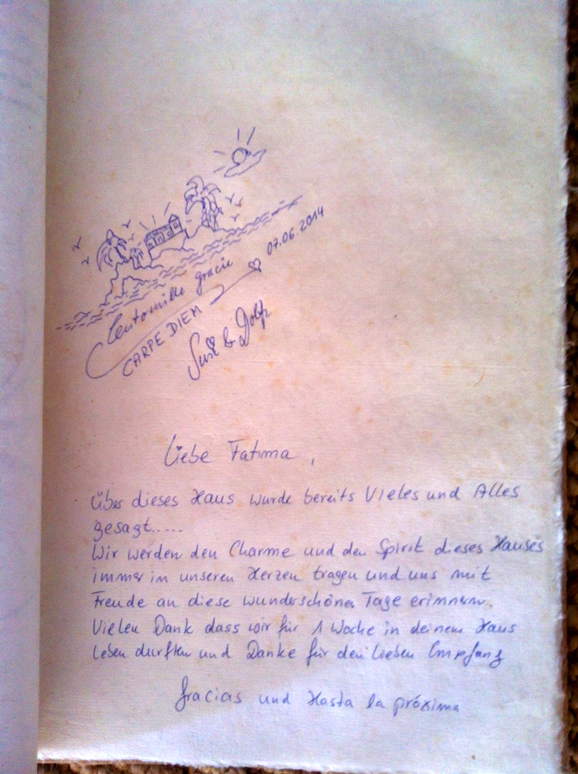 Centomille gracie
07.06.2014
CARPE DIEM
Susi & Dolf
Liebe Fatima,
Über dieses Haus wurde bereits Vieles und Alles
gesagt.....
Wir werden den Charme und den Spirit dieses Hauses
immer in unseren Herzen tragen und uns mit
Freude an diese wunderschönen Tage erinnern.
Vielen Dank dass wir für 1 Woche in deinem Haus
leben durften und Danke für den lieben Empfang
Gracias und Hasta la próxima